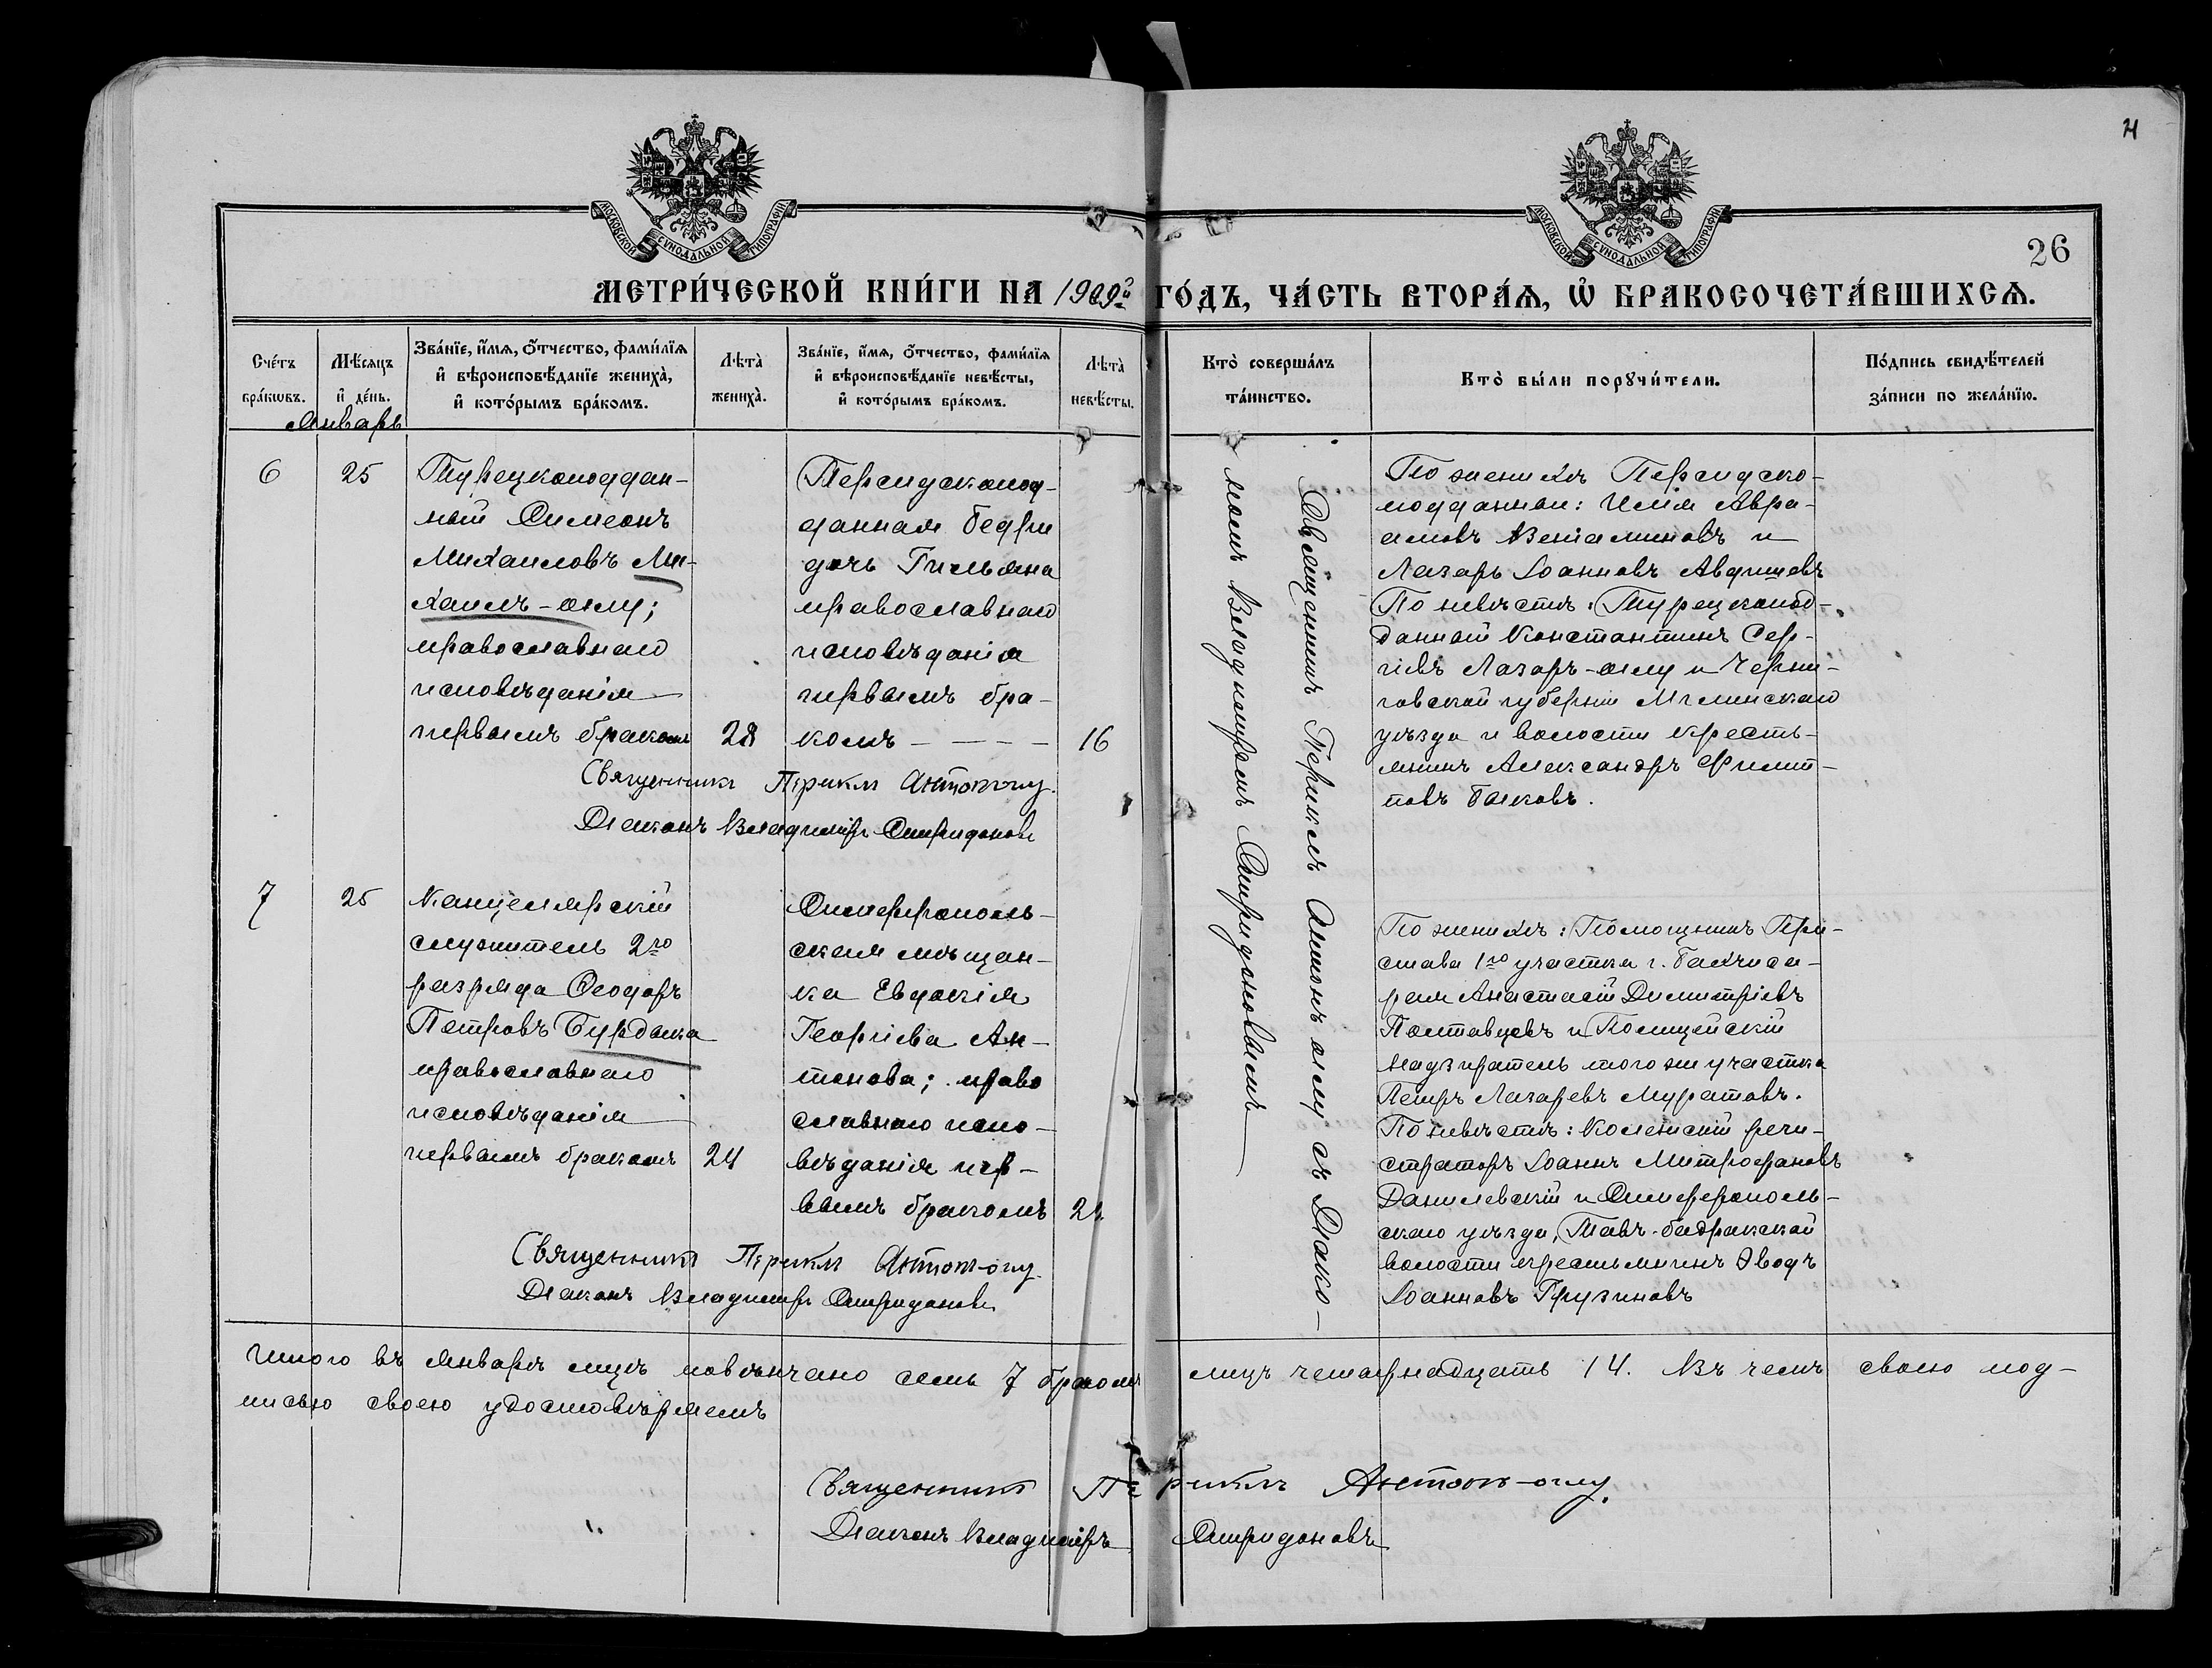 4
26
МОСКОВСКОЙ СѴНОДАЛЬНОЙ ТИПОГРАФІИ
МОСКОВСКОЙ СѴНОДАЛЬНОЙ ТИПОГРАФІИ
МЕТРИ́ЧЕСКОЙ КНИ́ГИ НА 1909й ГО́ДЪ, ЧА́СТЬ ВТОРА́Ѧ, Ѡ҆ БРАКОСОЧЕТА́ВШИХСѦ.
Сче́тъ бра́кѡвъ.
Мѣ́сяцъ и҆ де́нь.
Зва́нїе, и҆́мѧ, ѻ҆́тчество, фами́лїѧ
и҆ вѣроисповѣ́данїе жениха̀,
и҆ кото́рымъ бра́комъ.
Лѣта̀ жениха̀.
Зва́нїе, и҆́мѧ, ѻ҆́тчество, фами́лїѧ
и҆ вѣроисповѣ́данїе невѣ́сты,
и҆ кото́рымъ бра́комъ.
Лѣта̀ невѣ́сты.
Кто̀ соверша́лъ
та́инство.
Кто̀ бы́ли порꙋчи́тели.
По́дпись свидѣ́телей
за́писи по жела́нїю.
Январь
6
25
Турецкоподдан-
ный Симеонъ
Михаиловъ Ми-
хаилъ-оглу;
православнаго
исповѣданія
первымъ бракомъ
28
Персидскопод-
данная Бедри
дочь Гильяна
православнаго
исповѣданія
первымъ бра-
комъ - - - -
16
Священникъ Периклъ Антонъ-оглу.
Діаконъ Владиміръ Спиридоновъ
Священникъ Периклъ Антонъ оглу съ Діако-
номъ Владиміромъ Спиридоновымъ
По женихѣ Персидско-
подданные: Илія Авра-
амовъ Веніаминовъ и
Лазарь Іоанновъ Авдишевъ
По невѣстѣ: Турецкопод-
данный Константинъ Сер-
гіевъ Лазарь-оглу и Черни-
говской губерніи Мглинскаго
уѣзда и волости кресть-
янинъ Александръ Филип-
повъ Быковъ.
7
25
Канцелярскій
служитель 2го
разряда Ѳеодоръ
Петровъ Бурдыка
православнаго
исповѣданія
первымъ бракомъ
24
Симферополь-
ская мѣщан-
ка Евдокія
Георгіева Ан-
тонова; право
славнаго испо-
вѣданія пер-
вымъ бракомъ
21
Священникъ Периклъ Антонъ-оглу
Діаконъ Владиміръ Спиридоновъ
По женихѣ: Помощникъ При-
става 1го участка г. Бахчиса-
рая Анастасій Димитріевъ
Полтавцевъ и Полицейскій
надзиратель того же участка
Петръ Лазаревъ Муратовъ.
По невѣстѣ: Колежскій реги-
страторъ Іоаннъ Митрофановъ
Данилевскій и Симферополь-
скаго уѣзда, Тавъ-бадракской
волости крестьянинъ Эводъ
Іоанновъ Грузиновъ
Итого въ январѣ мцѣ повѣнчано семь 7 браковъ лицъ четырнадцать 14. Въ чемъ своею под-
писью своею удостовѣряемъ
Священникъ Периклъ Антонъ-оглу.
Діаконъ Владиміръ Спиридоновъ